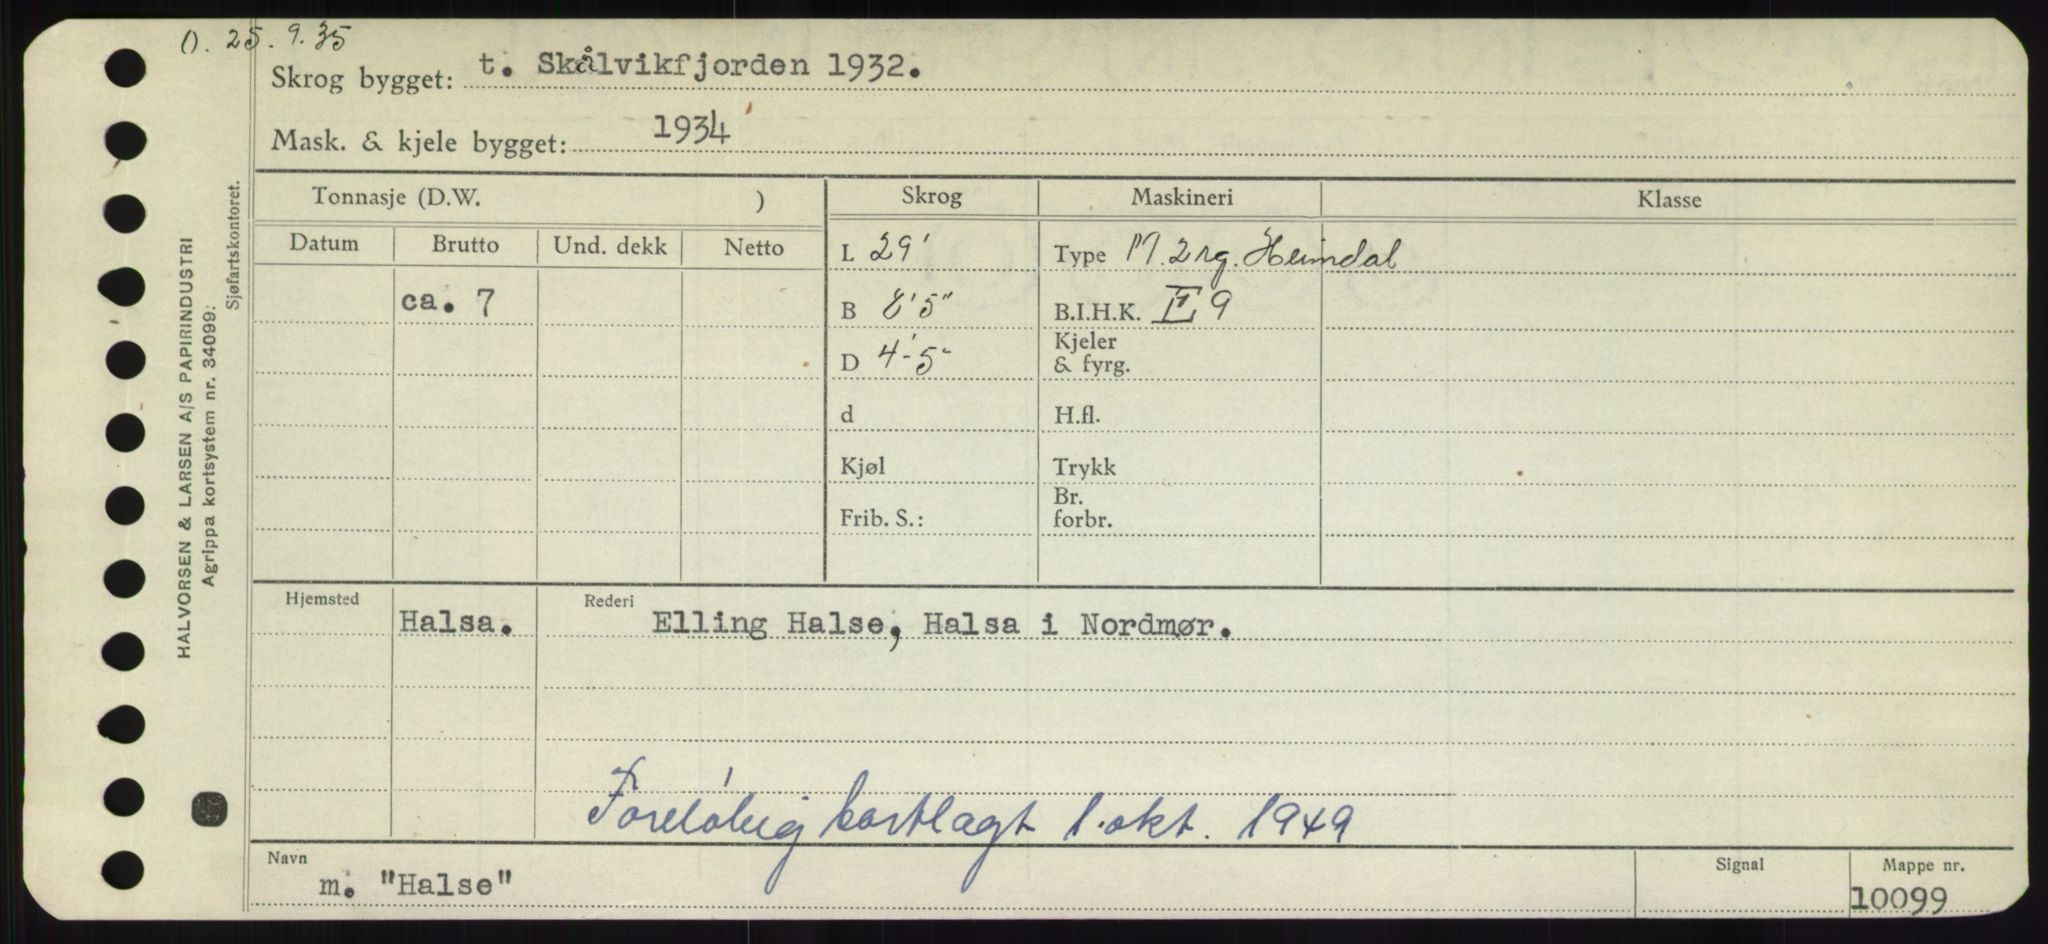 (). 25.9.35
Skrog bygget: t. Skålvikfjorden 1932.
Mask. & kjele bygget: 1934
Tonnasje (D.W. ) Skrog Maskineri Klasse
Datum Brutto Und. dekk Netto L 29' Type M. 2 rg. Heimdal
ca. 7 B 8'5" B.I.H.K. E 9
D 4'-5" Kjeler & fyrg.
d H.fl.
Kjøl Trykk
Frib. S.: Br. forbr.
Hjemsted Rederi
Halsa. Elling Halse, Halsa i Nordmør.
Foreløbig bortlagt 1. okt. 1949
Navn Signal Mappe nr.
m. "Halse" 10099
HALVORSEN & LARSEN A/S PAPIRINDUSTRI
Agrippa kortsystem nr. 34099:
Sjøfartskontoret.